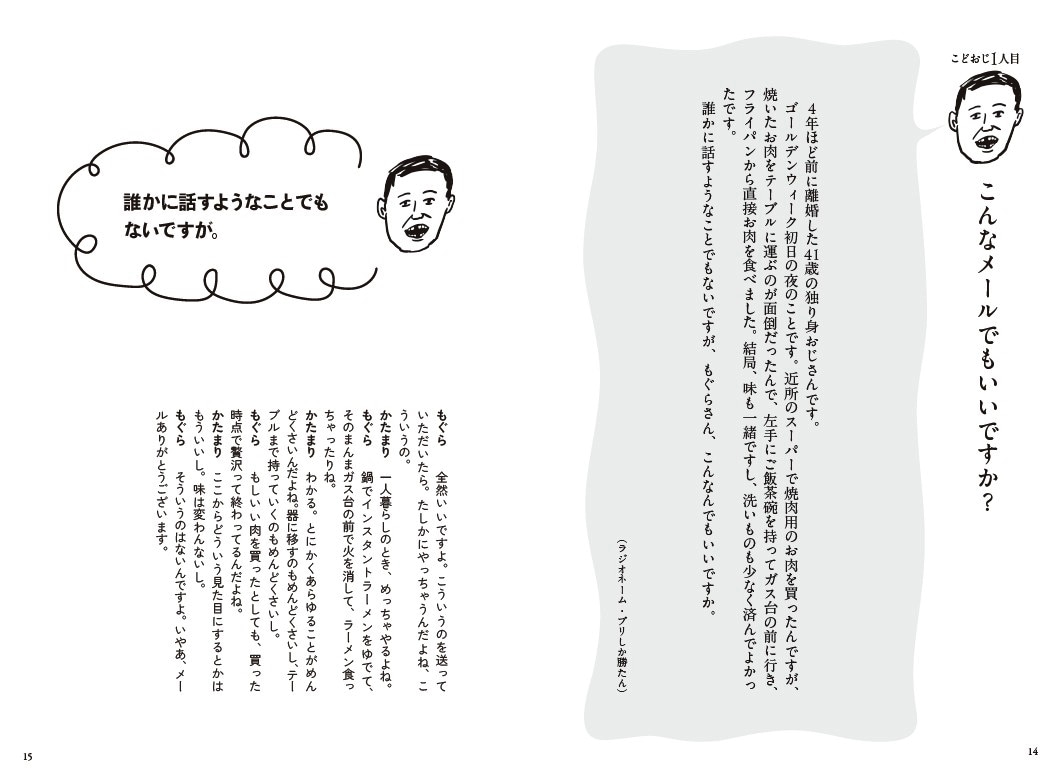 こどおじ1人目
こんなメールでもいいですか?
4年ほど前に離婚した41歳の独り身おじさんです。
ゴールデンウィーク初日の夜のことです。近所のスーパーで焼肉用のお肉を買ったんですが、
焼いたお肉をテーブルに運ぶのが面倒だったんで、左手にご飯茶碗を持ってガス台の前に行き、
フライパンから直接お肉を食べました。結局、味も一緒ですし、洗いものも少なく済んでよかっ
たです。
誰かに話すようなことでもないですが、もぐらさん、こんなんでもいいですか。
(ラジオネーム・ブリしか勝たん)
14
誰かに話すようなことでも
ないですが。
もぐら 全然いいですよ。こういうのを送って
いただいたら。たしかにやっちゃうんだよね、こ
ういうの。
かたまり 一人暮らしのとき、めっちゃやるよね。
もぐら 鍋でインスタントラーメンをゆでて、
そのまんまガス台の前で火を消して、ラーメン食っ
ちゃったりね。
かたまり わかる。とにかくあらゆることがめん
どくさいんだよね。器に移すのもめんどくさいし、テー
ブルまで持っていくのもめんどくさいし。
もぐら もしいい肉を買ったとしても、買った
時点で贅沢って終わってるんだよね。
かたまり ここからどういう見た目にするとかは
もういいし。味は変わんないし。
もぐら そういうのはないんですよ。いやあ、メー
ルありがとうございます。
15